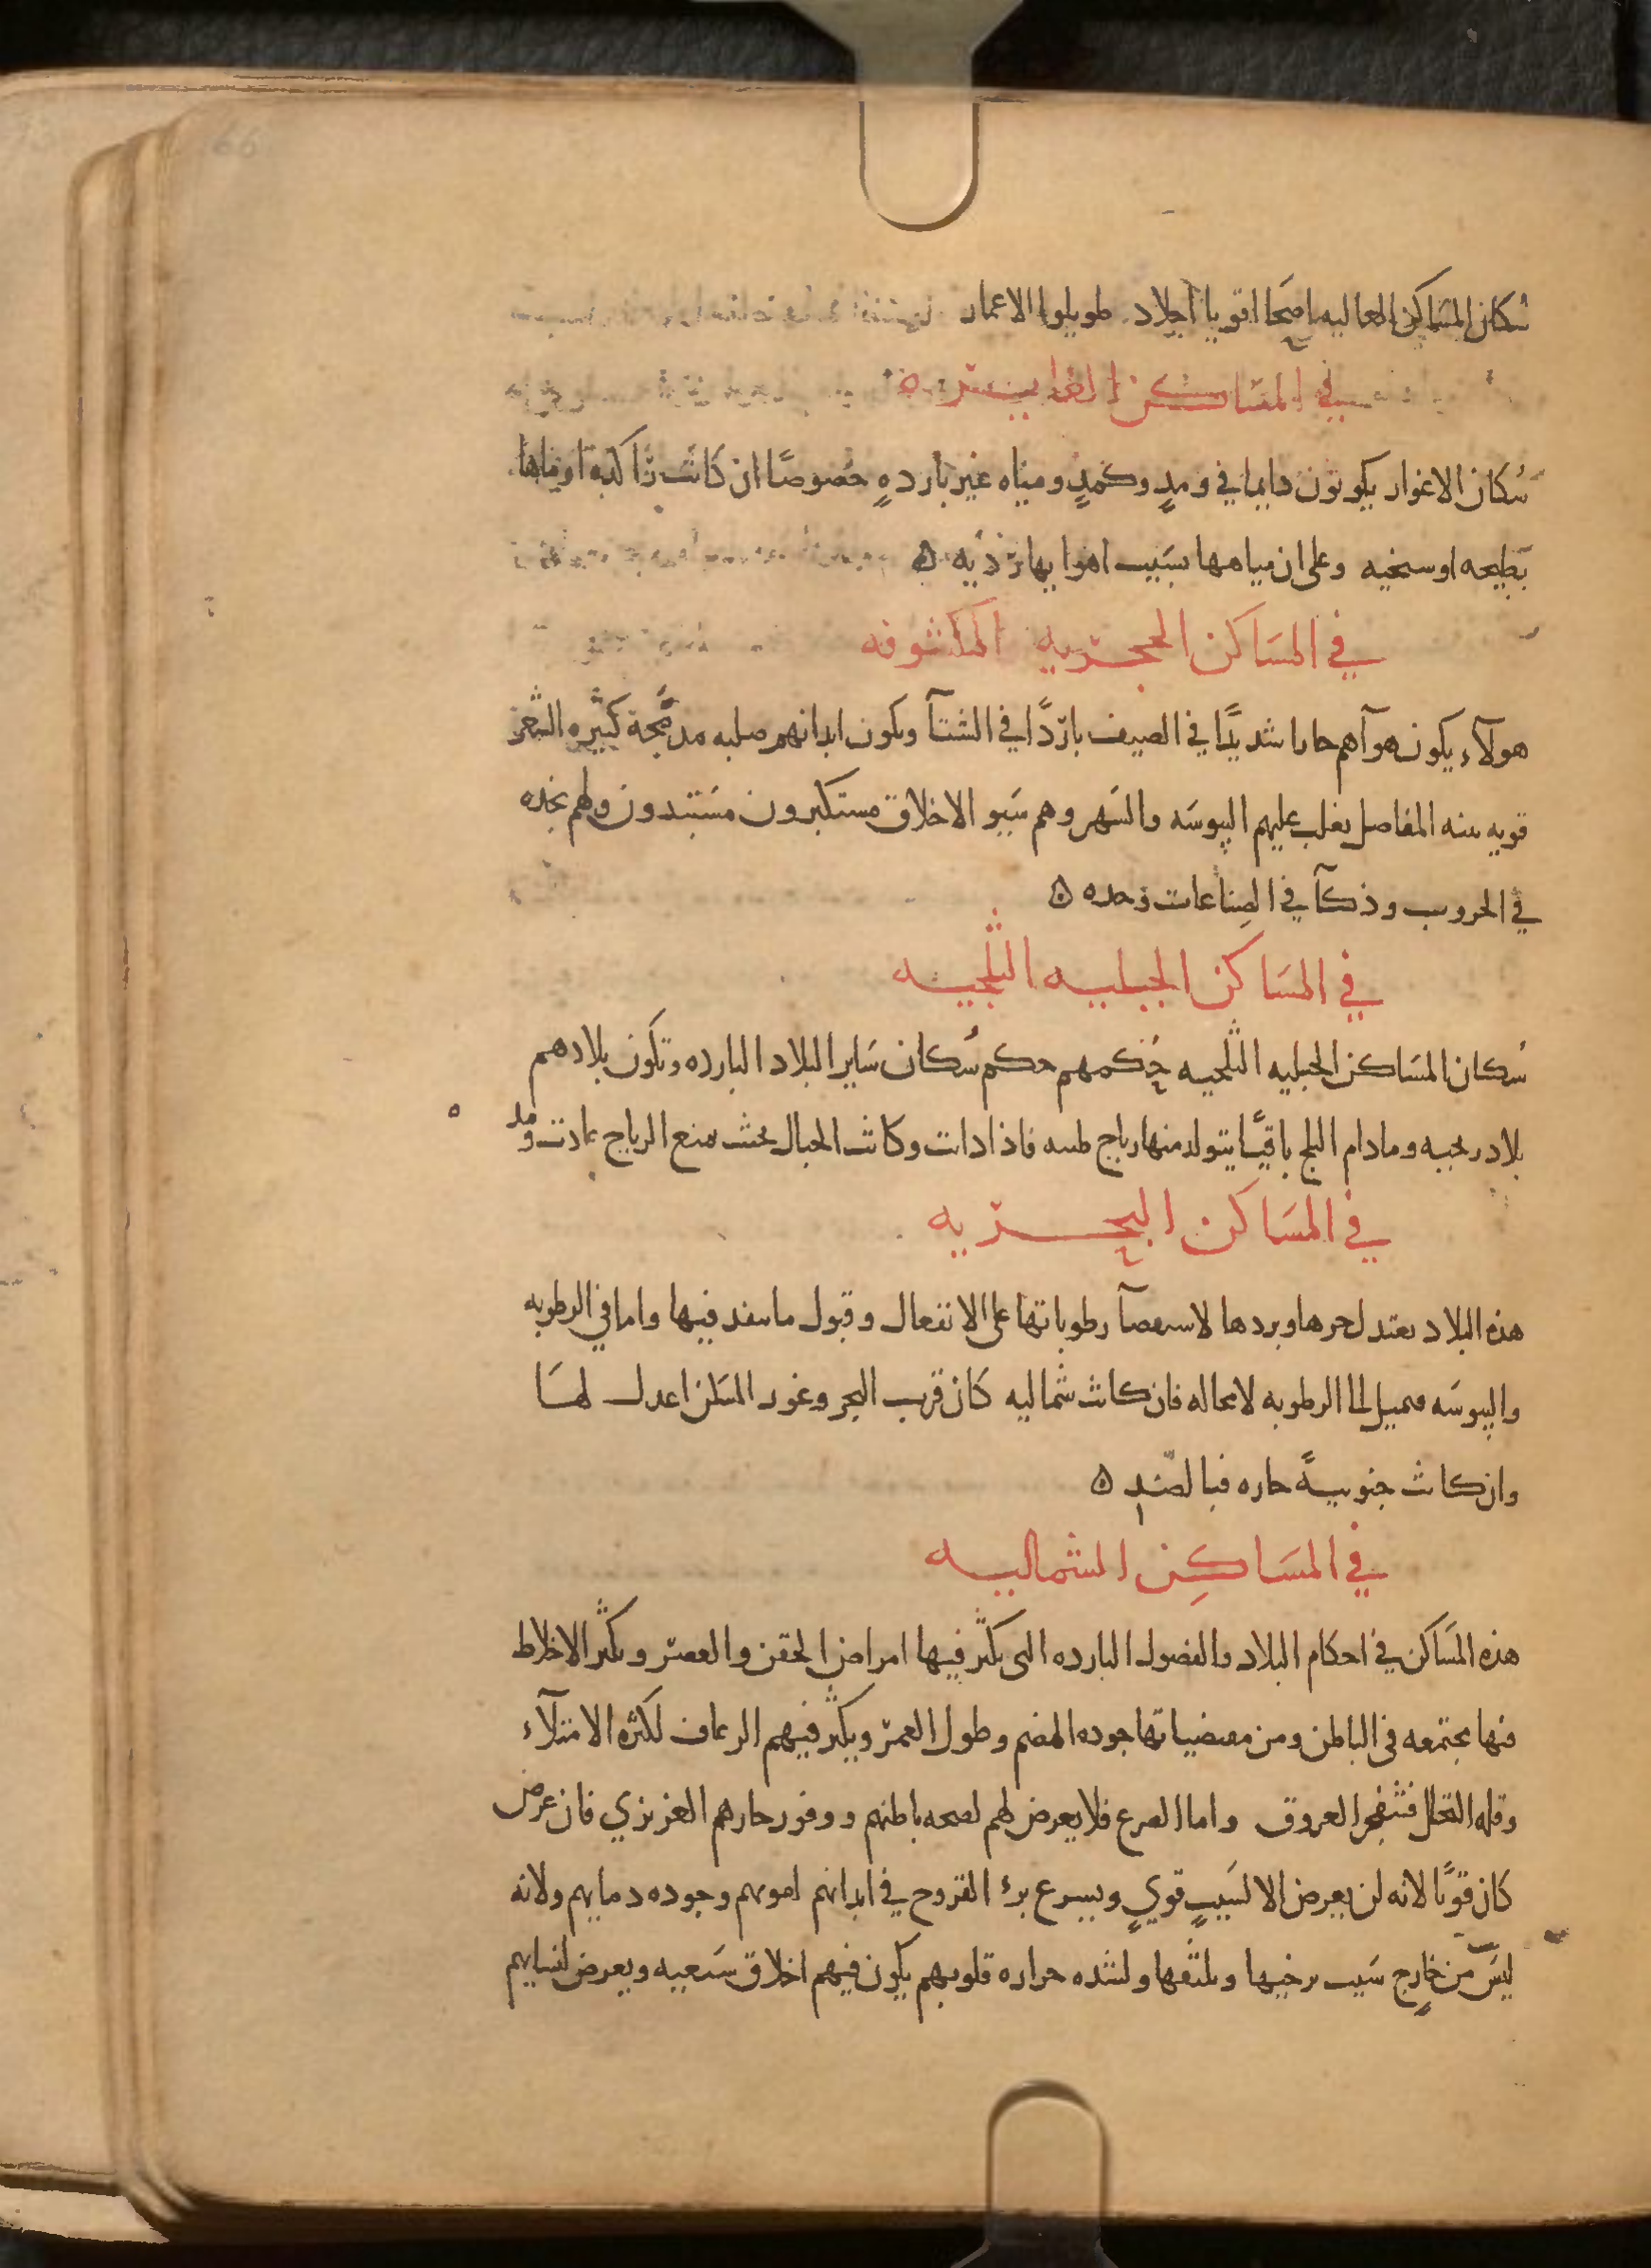 سكان المساكن العاليه اصحا اقويا اجلاد طويلوا الاعمار
في المساكن الغايره
سُكان الاغوار يكونون دايما في ومدٍ وكمدٍ ومياه غير باردهٍ خصوصًا ان كانت راكده او مياها
بطيحه او سبخيه وعلى ان مياهها بسَبب اهوايها رديه ه
في المسَاكن الحجريه المكشوفه
هولآء يكون هوآهم حارا شديدًا في الصيف باردًا في الشتآ وىكون ابدانهم صلبه مدمَّجة كثيره الشعر
قويه ىىنه المفاصل ىغلب عليهم اليبوسَه والسَهر وهم سَيىو الاخلاق مستكبرون مسَتبدون ولهم نجده
في الحروب وذكآ في الصِناعات وحده ه
في المسَاكن الجبليه الثلجيه
سُكان المسَاكن الجبليه الثلجيه حُكمهم حكم سُكان سَاير البلاد البارده وتكون بلادهم
بلاد رىحيه ومادام الىلج باقيًا يتولد منها رياح طىىه فاذا دابت وكانت الجبال بحىث تمنع الرياح عادت ومده
في المسَاكن البحريه
هذه البلاد ىعتدل حرها وبردها لاسىعصآ رطوباتها على الانفعال وقبول ما ىىفد فيها واما في الرطوبه
واليبوسَه فىميل الى الرطوبه لامحاله فان كانت شماليه كان قرب البحر وغور المسَكن اعدل لهَا
وان كانت جنوبيةً حاره فبالضّد ه
في المسَاكِن الشماليه
هذه المسَاكن في احكام البلاد والفصول البارده التى يكثر فيها امراض الحقن والعصر وىكثر الاخلاط
فيها مجتمعه فى الباطن ومن مقتضياتها جوده الهضم وطول العمر ويكثر فيهم الرعاف لكثره الامتلآء
وقله التحلل فتنفجر العروق واما الصرع فلا يعرض لهم لصحه باطنهم ووفور حارهم الغريزي فان عرض
كان قويًا لانه لن يعرض الا لسَببٍ قويٍ ويسرع برء القروح في ابدانهم لقوىهم وجوده دمايهم ولانه
ليسَ من خارج سَبب يرخيها ويلىنها ولشده حراره قلوبهم يكون فيهم اخلاق سَبعيه ويعرض لنسايهم